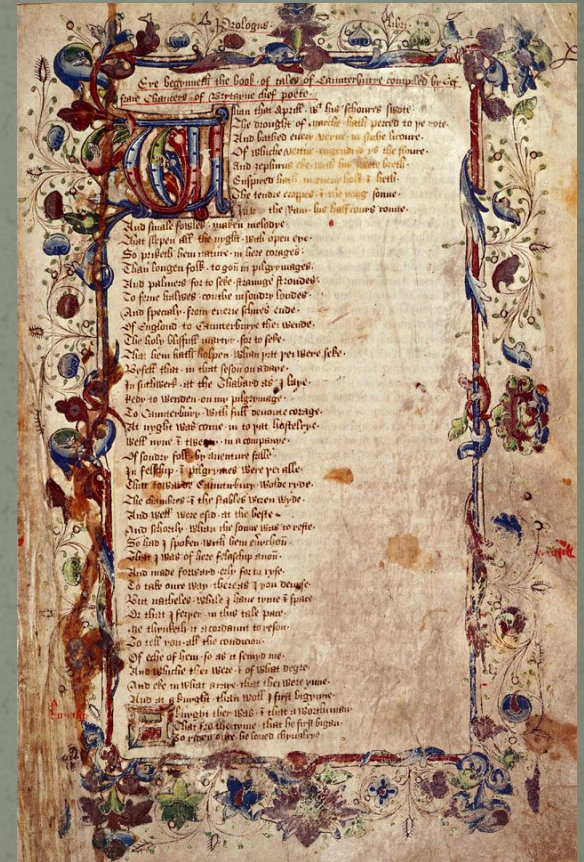 Prologus libri
Eye begynneth the book of tales of Caunterburye compiled by Gef
fraie Chaucers of Brytayne chef poete
Whan that Aprill wt his schoures swote
The drought of marche hath perced to ye rote
And bathed euery veyne in suche licoure
Of whiche vertue engendred ys the floure
And zephirus eke with his swete breth
Enspired hath in euery holt & heth
The tendre croppes & the yong sonne
In to the Ram his half cours ronne
And smale fowles maken melodye
That slepen all the nyght with open eye
So priketh hem nature in here corages
Than longen folk to gon in pilgrymages
And palmers for to seke straunge strondes
To ferne halwes couthe in sondry londes
And specialy from euerie schires ende
Of Englond to Caunterburye thei wende
The holy blisfull martir for to seke
That hem hath holpen whan yat yei were seke
Byfell that in that seson on a daye
In suthwerk at the Thabard as I laye
Redy to wenden on my pilgrimage
To Caunterbury with full deuoute corage
At nyght was come in to yat hostelrye
Well nyne & twenty in a companye
Of sondry folk by auenture falle
In felschip & pilgrymes were yei alle
That towarde Caunterbury wolde ryde
The chambres & the stables weren wyde
And well were esid at the beste
And schortly whan the sonne was to reste
So had I spoken with hem euerichon
That I was of here felaschip anon
And made forward erly for to ryse
To take oure way there as I you deuyse
But natheles while I have tyme & space
Or that I feryer in this tale pace
Me thynketh it acordaunt to reson
To tell you all the condicion
Of eche of hem so as it semyd me
And whiche thei were & of what degre
And eke in what araye that thei were ynne
And at a knyght than woll I first bigynne
A knyght ther was & that a worthi man
That fro the tyme that he first bigan
To riden oute he loved chyualrye